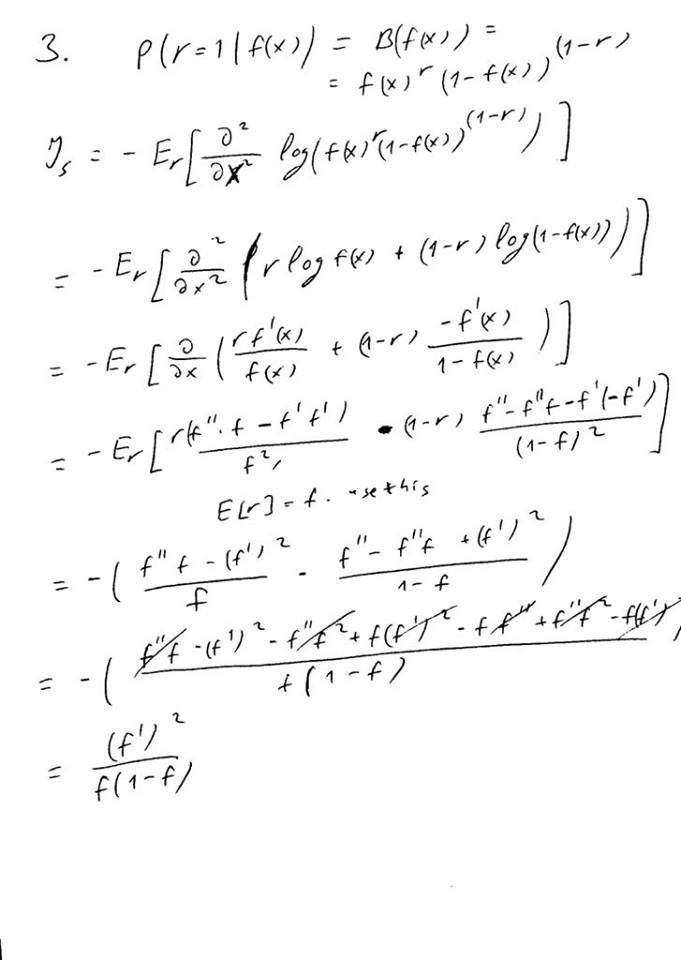 3. P(r=1|f(x)) = B(f(x)) =
= f(x)^r (1-f(x))^(1-r)
J_s = - E_r[∂²/∂x² log(f(x)^r(1-f(x))^(1-r))]
= - E_r[∂²/∂x² (r log f(x) + (1-r) log(1-f(x)))]
= - E_r[∂/∂x (rf'(x)/f(x) + (1-r) -f'(x)/1-f(x))]
= - E_r[r(f''·f - f'f')/f² - (1-r) f''-f''f-f'(-f')/(1-f)²]
E[r] = f. use this
= - (f''f - (f')²/f - f''-f''f+(f')²/1-f)
= - (f''f-(f')²-f''f²+f(f')²-ff''+f''f²-f(f')²/f(1-f)
= (f')²/f(1-f)